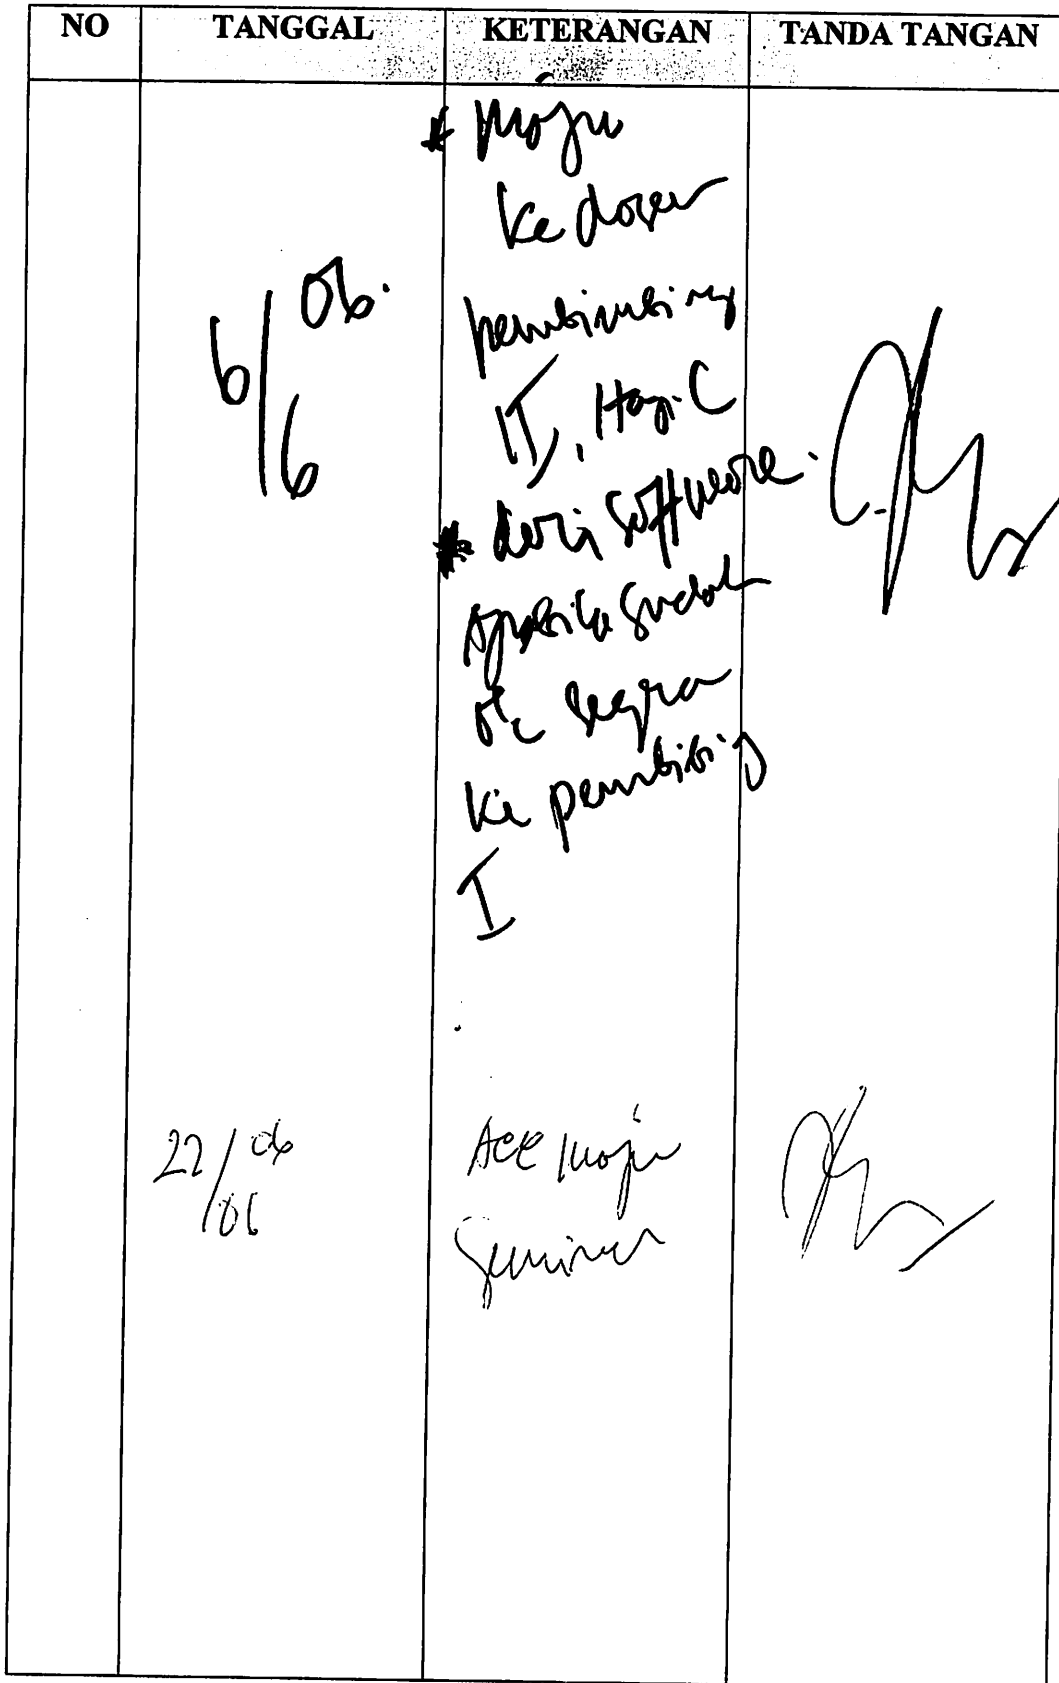 NO TANGGAL KETERANGAN TANDA TANGAN
* Maju
ke dosen
6/6 06.
pembimbing
II,
* dari software.
Apabila sudah
ok segra
ke pembibing
I
22/06 06
Acc maju
Seminar